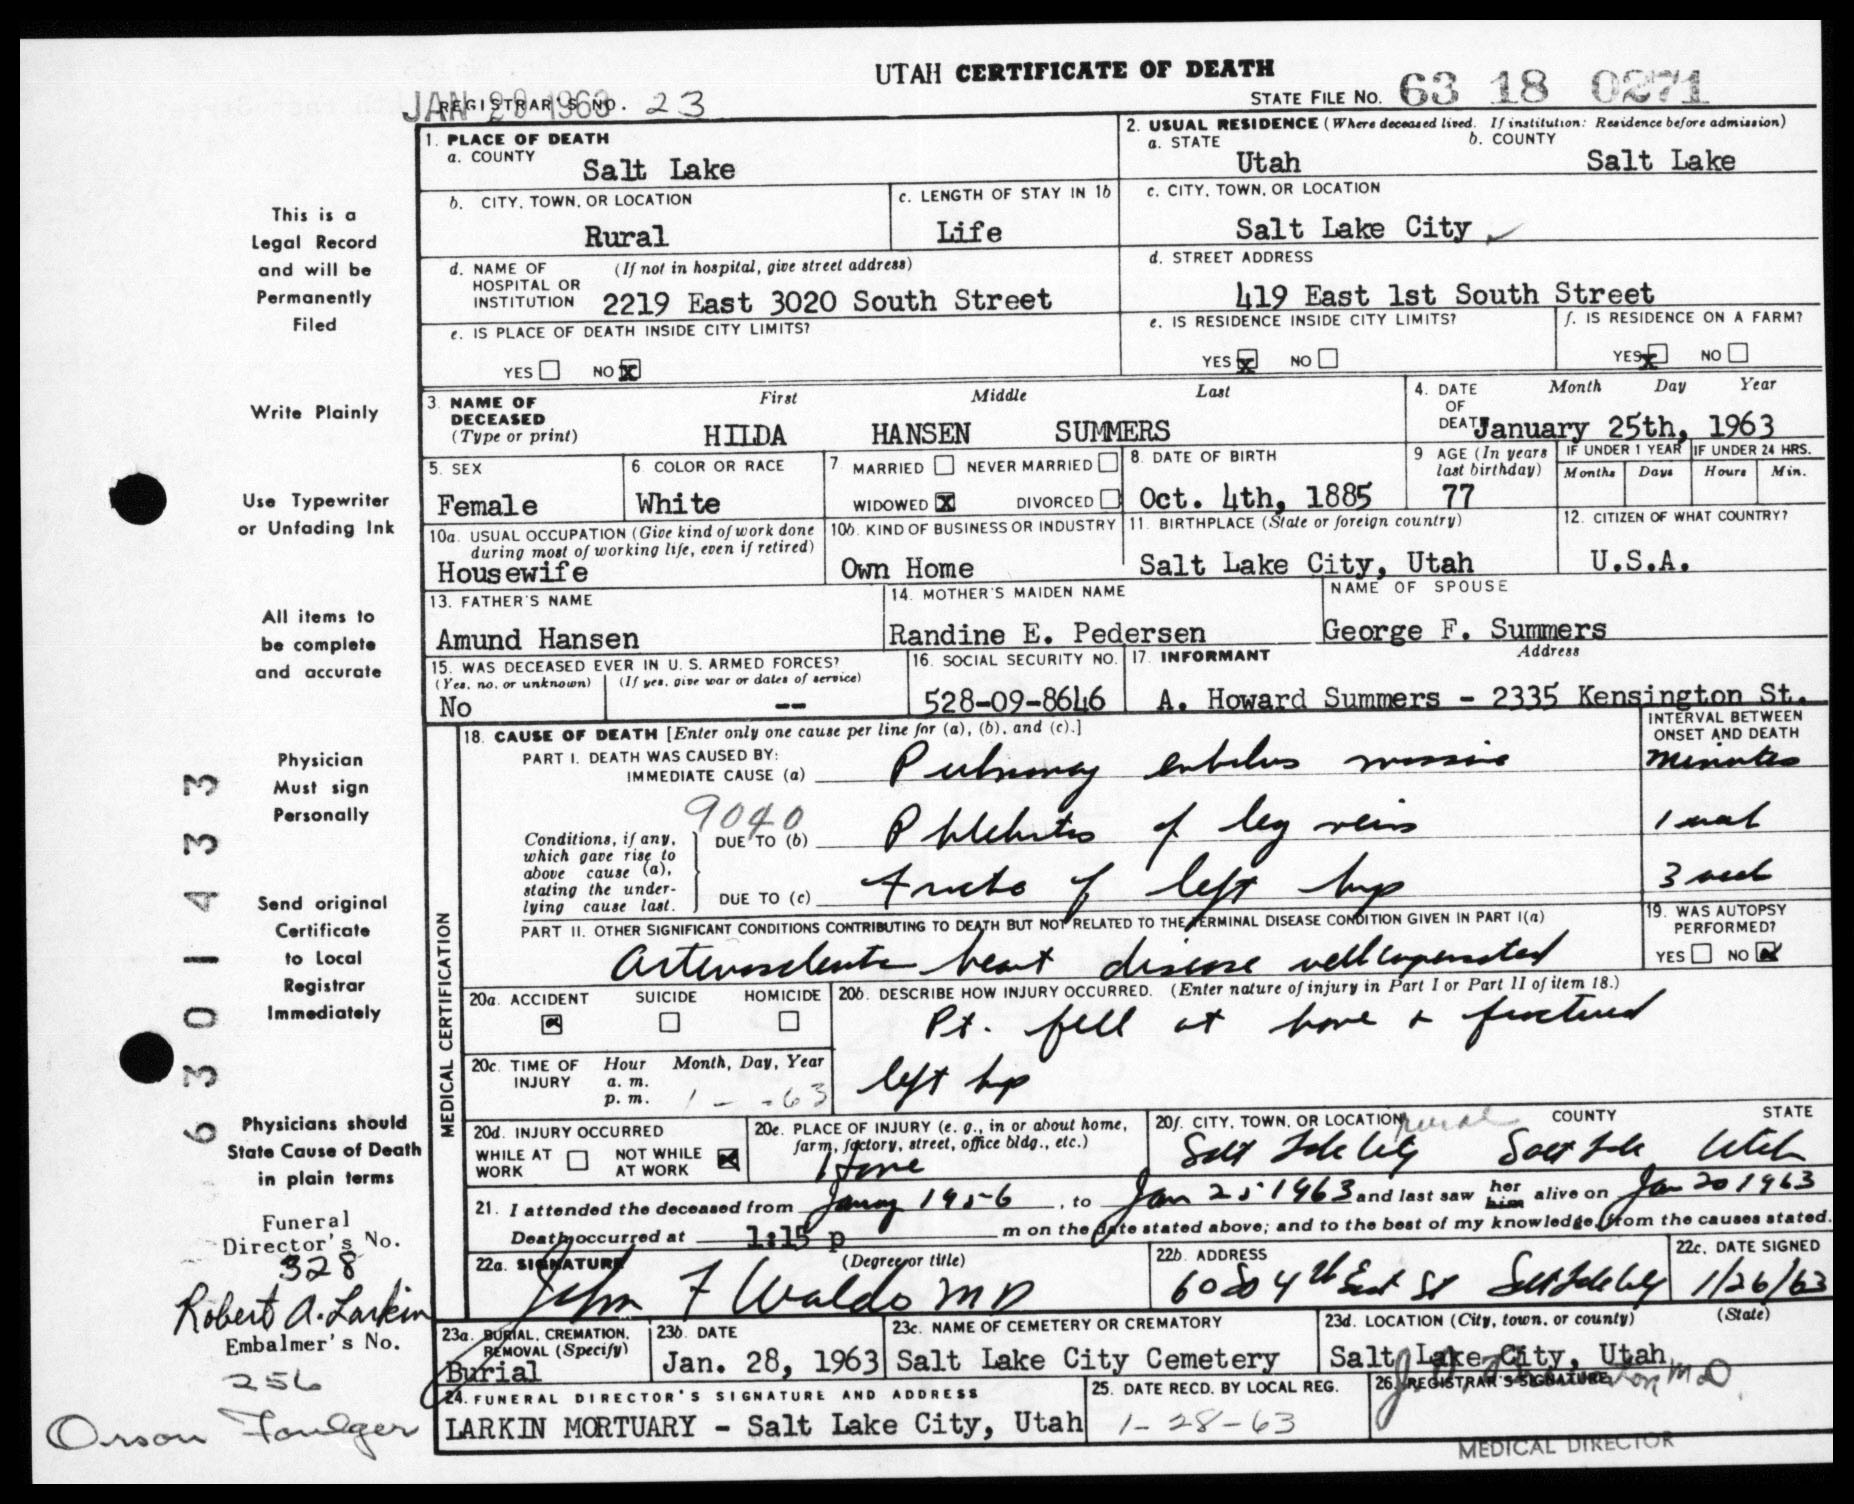 UTAH CERTIFICATE OF DEATH
JAN 28 1963
REGISTRAR'S NO. 23
STATE FILE NO. 63 18 0271
1. PLACE OF DEATH
a. COUNTY
Salt Lake
2. USUAL RESIDENCE (Where deceased lived. If institution: Residence before admission)
a. STATE
Utah
b. COUNTY
Salt Lake
b. CITY, TOWN, OR LOCATION
Rural
c. LENGTH OF STAY IN 1b
Life
c. CITY, TOWN, OR LOCATION
Salt Lake City
d. NAME OF HOSPITAL OR INSTITUTION
(If not in hospital, give street address)
2219 East 3020 South Street
d. STREET ADDRESS
419 East 1st South Street
e. IS PLACE OF DEATH INSIDE CITY LIMITS?
YES NO X
e. IS RESIDENCE INSIDE CITY LIMITS?
YES X NO
f. IS RESIDENCE ON A FARM?
YES X NO
3. NAME OF DECEASED
(Type or print)
First Middle Last
HILDA HANSEN SUMMERS
4. DATE OF DEATH
Month Day Year
January 25th, 1963
5. SEX
Female
6. COLOR OR RACE
White
7. MARRIED NEVER MARRIED
WIDOWED X DIVORCED
8. DATE OF BIRTH
Oct. 4th, 1885
9 AGE (In years last birthday)
77
IF UNDER 1 YEAR
Months Days
IF UNDER 24 HRS.
Hours Min.
10a. USUAL OCCUPATION (Give kind of work done during most of working life, even if retired)
Housewife
10b. KIND OF BUSINESS OR INDUSTRY
Own Home
11. BIRTHPLACE (State or foreign country)
Salt Lake City, Utah
12. CITIZEN OF WHAT COUNTRY?
U.S.A.
13. FATHER'S NAME
Amund Hansen
14. MOTHER'S MAIDEN NAME
Randine E. Pedersen
NAME OF SPOUSE
George F. Summers
15. WAS DECEASED EVER IN U. S. ARMED FORCES?
(Yes, no, or unknown) (If yes, give war or dates of service)
No --
16. SOCIAL SECURITY NO.
528-09-8646
17. INFORMANT Address
A. Howard Summers - 2335 Kensington St.
MEDICAL CERTIFICATION
18. CAUSE OF DEATH [Enter only one cause per line for (a), (b), and (c).]
INTERVAL BETWEEN ONSET AND DEATH
PART I. DEATH WAS CAUSED BY:
IMMEDIATE CAUSE (a) Pulmonary embolus massive minutes
9040
Conditions, if any, which gave rise to above cause (a), stating the underlying cause last.
DUE TO (b) Phlebitis of leg veins 1 week
DUE TO (c) Fracture of left hip 3 week
PART II. OTHER SIGNIFICANT CONDITIONS CONTRIBUTING TO DEATH BUT NOT RELATED TO THE TERMINAL DISEASE CONDITION GIVEN IN PART I(a)
Arteriosclerotic heart disease well compensated
19. WAS AUTOPSY PERFORMED?
YES NO X
20a. ACCIDENT SUICIDE HOMICIDE
20b. DESCRIBE HOW INJURY OCCURRED. (Enter nature of injury in Part I or Part II of item 18.)
Pt. fell at home & fractured
left hip
20c. TIME OF INJURY
Hour Month, Day, Year
a. m.
p. m. 1 - -63
20d. INJURY OCCURRED
WHILE AT WORK NOT WHILE AT WORK X
20e. PLACE OF INJURY (e. g., in or about home, farm, factory, street, office bldg., etc.)
Home
20f. CITY, TOWN, OR LOCATION COUNTY STATE
rural
Salt Lake City Salt Lake Utah
21. I attended the deceased from January 1956, to Jan 25 1963 and last saw her him alive on Jan 20 1963
Death occurred at 1:15 p m on the date stated above; and to the best of my knowledge, from the causes stated.
22a. SIGNATURE (Degree or title)
John F Waldo MD
22b. ADDRESS
60 So 4th East St Salt Lake City
22c. DATE SIGNED
1/26/63
23a. BURIAL, CREMATION, REMOVAL (Specify)
Burial
23b. DATE
Jan. 28, 1963
23c. NAME OF CEMETERY OR CREMATORY
Salt Lake City Cemetery
23d. LOCATION (City, town, or county) (State)
Salt Lake City, Utah
24. FUNERAL DIRECTOR'S SIGNATURE AND ADDRESS
LARKIN MORTUARY - Salt Lake City, Utah
25. DATE RECD. BY LOCAL REG.
1-28-63
26. REGISTRAR'S SIGNATURE
M.D.
MEDICAL DIRECTOR
This is a
Legal Record
and will be
Permanently
Filed
Write Plainly
Use Typewriter
or Unfading Ink
All items to
be complete
and accurate
Physician
Must sign
Personally
Send original
Certificate
to Local
Registrar
Immediately
Physicians should
State Cause of Death
in plain terms
Funeral
Director's No.
328
Robert A. Larkin
Embalmer's No.
256
Orson Foulger
6 3 0 1 4 3 3